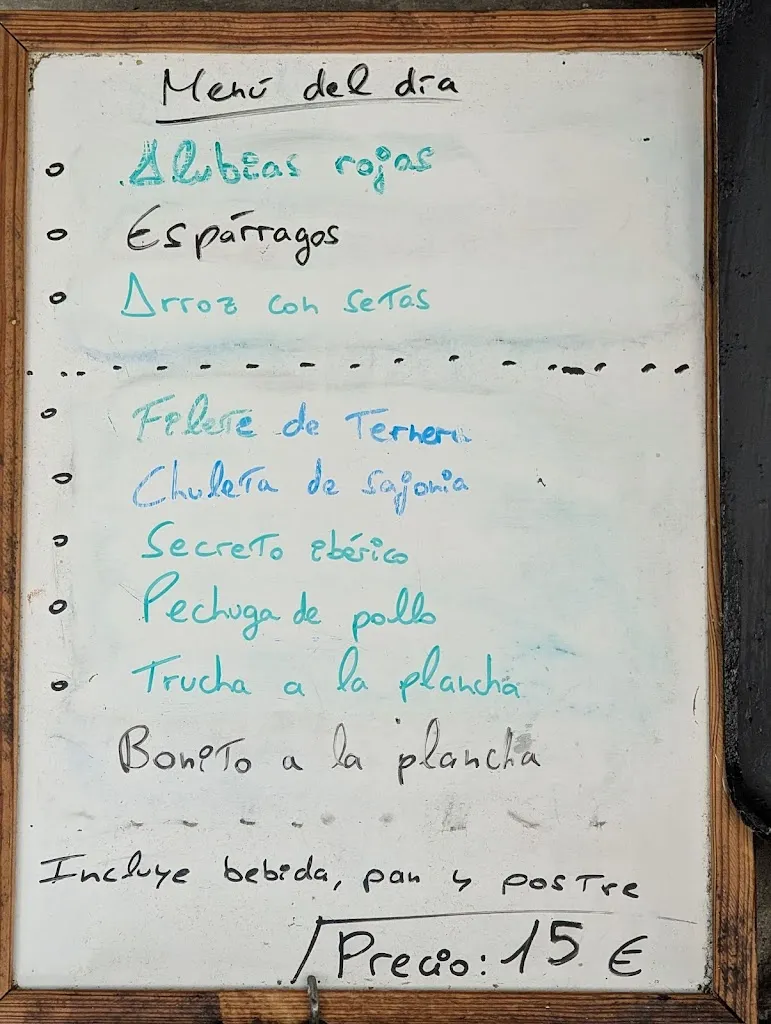 Menú del día
Alubias rojas
Espárragos
Arroz con setas
Filete de Ternera
Chuleta de sajonia
Secreto ibérico
Pechuga de pollo
Trucha a la plancha
Bonito a la plancha
Incluye bebida, pan y postre
Precio: 15 €